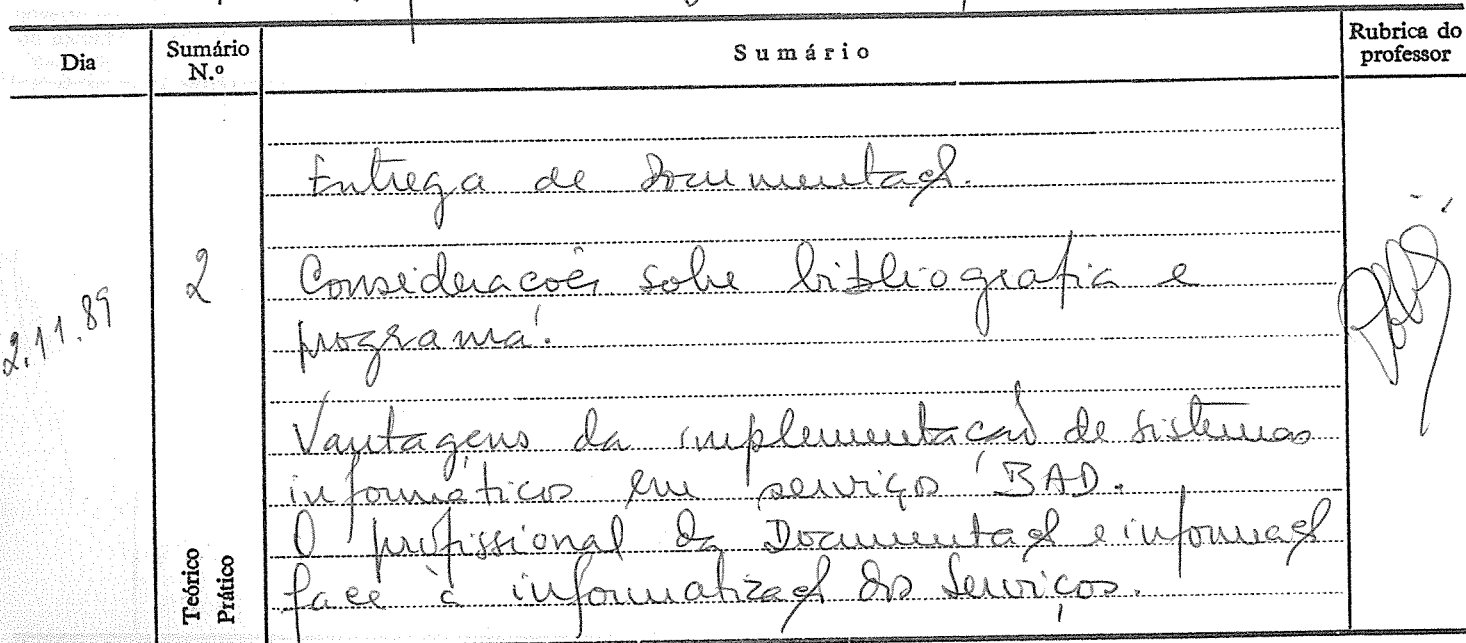 Dia
Sumário
N.º
Sumário
Rubrica do
professor
Entrega de Documentaçã.
2.11.89
2
Considerações sobre bibliografia e
programa.
Vantagens da implementação de sistemas
informáticos em serviços BAD.
O profissional da Documentaçã e informaçã
face à informatizaçã dos Serviços.
Teórico
Prático